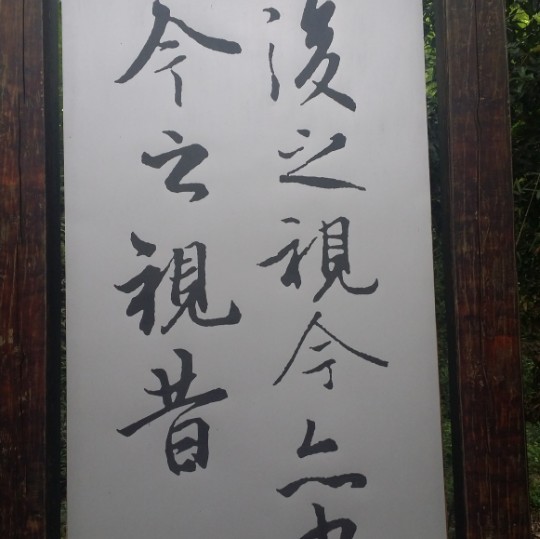 後之視今亦
今之視昔